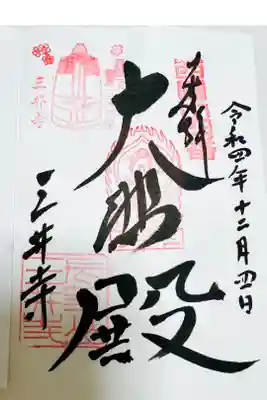 令和四年十二月四日
奉拝
大悲殿
三井寺
三井寺